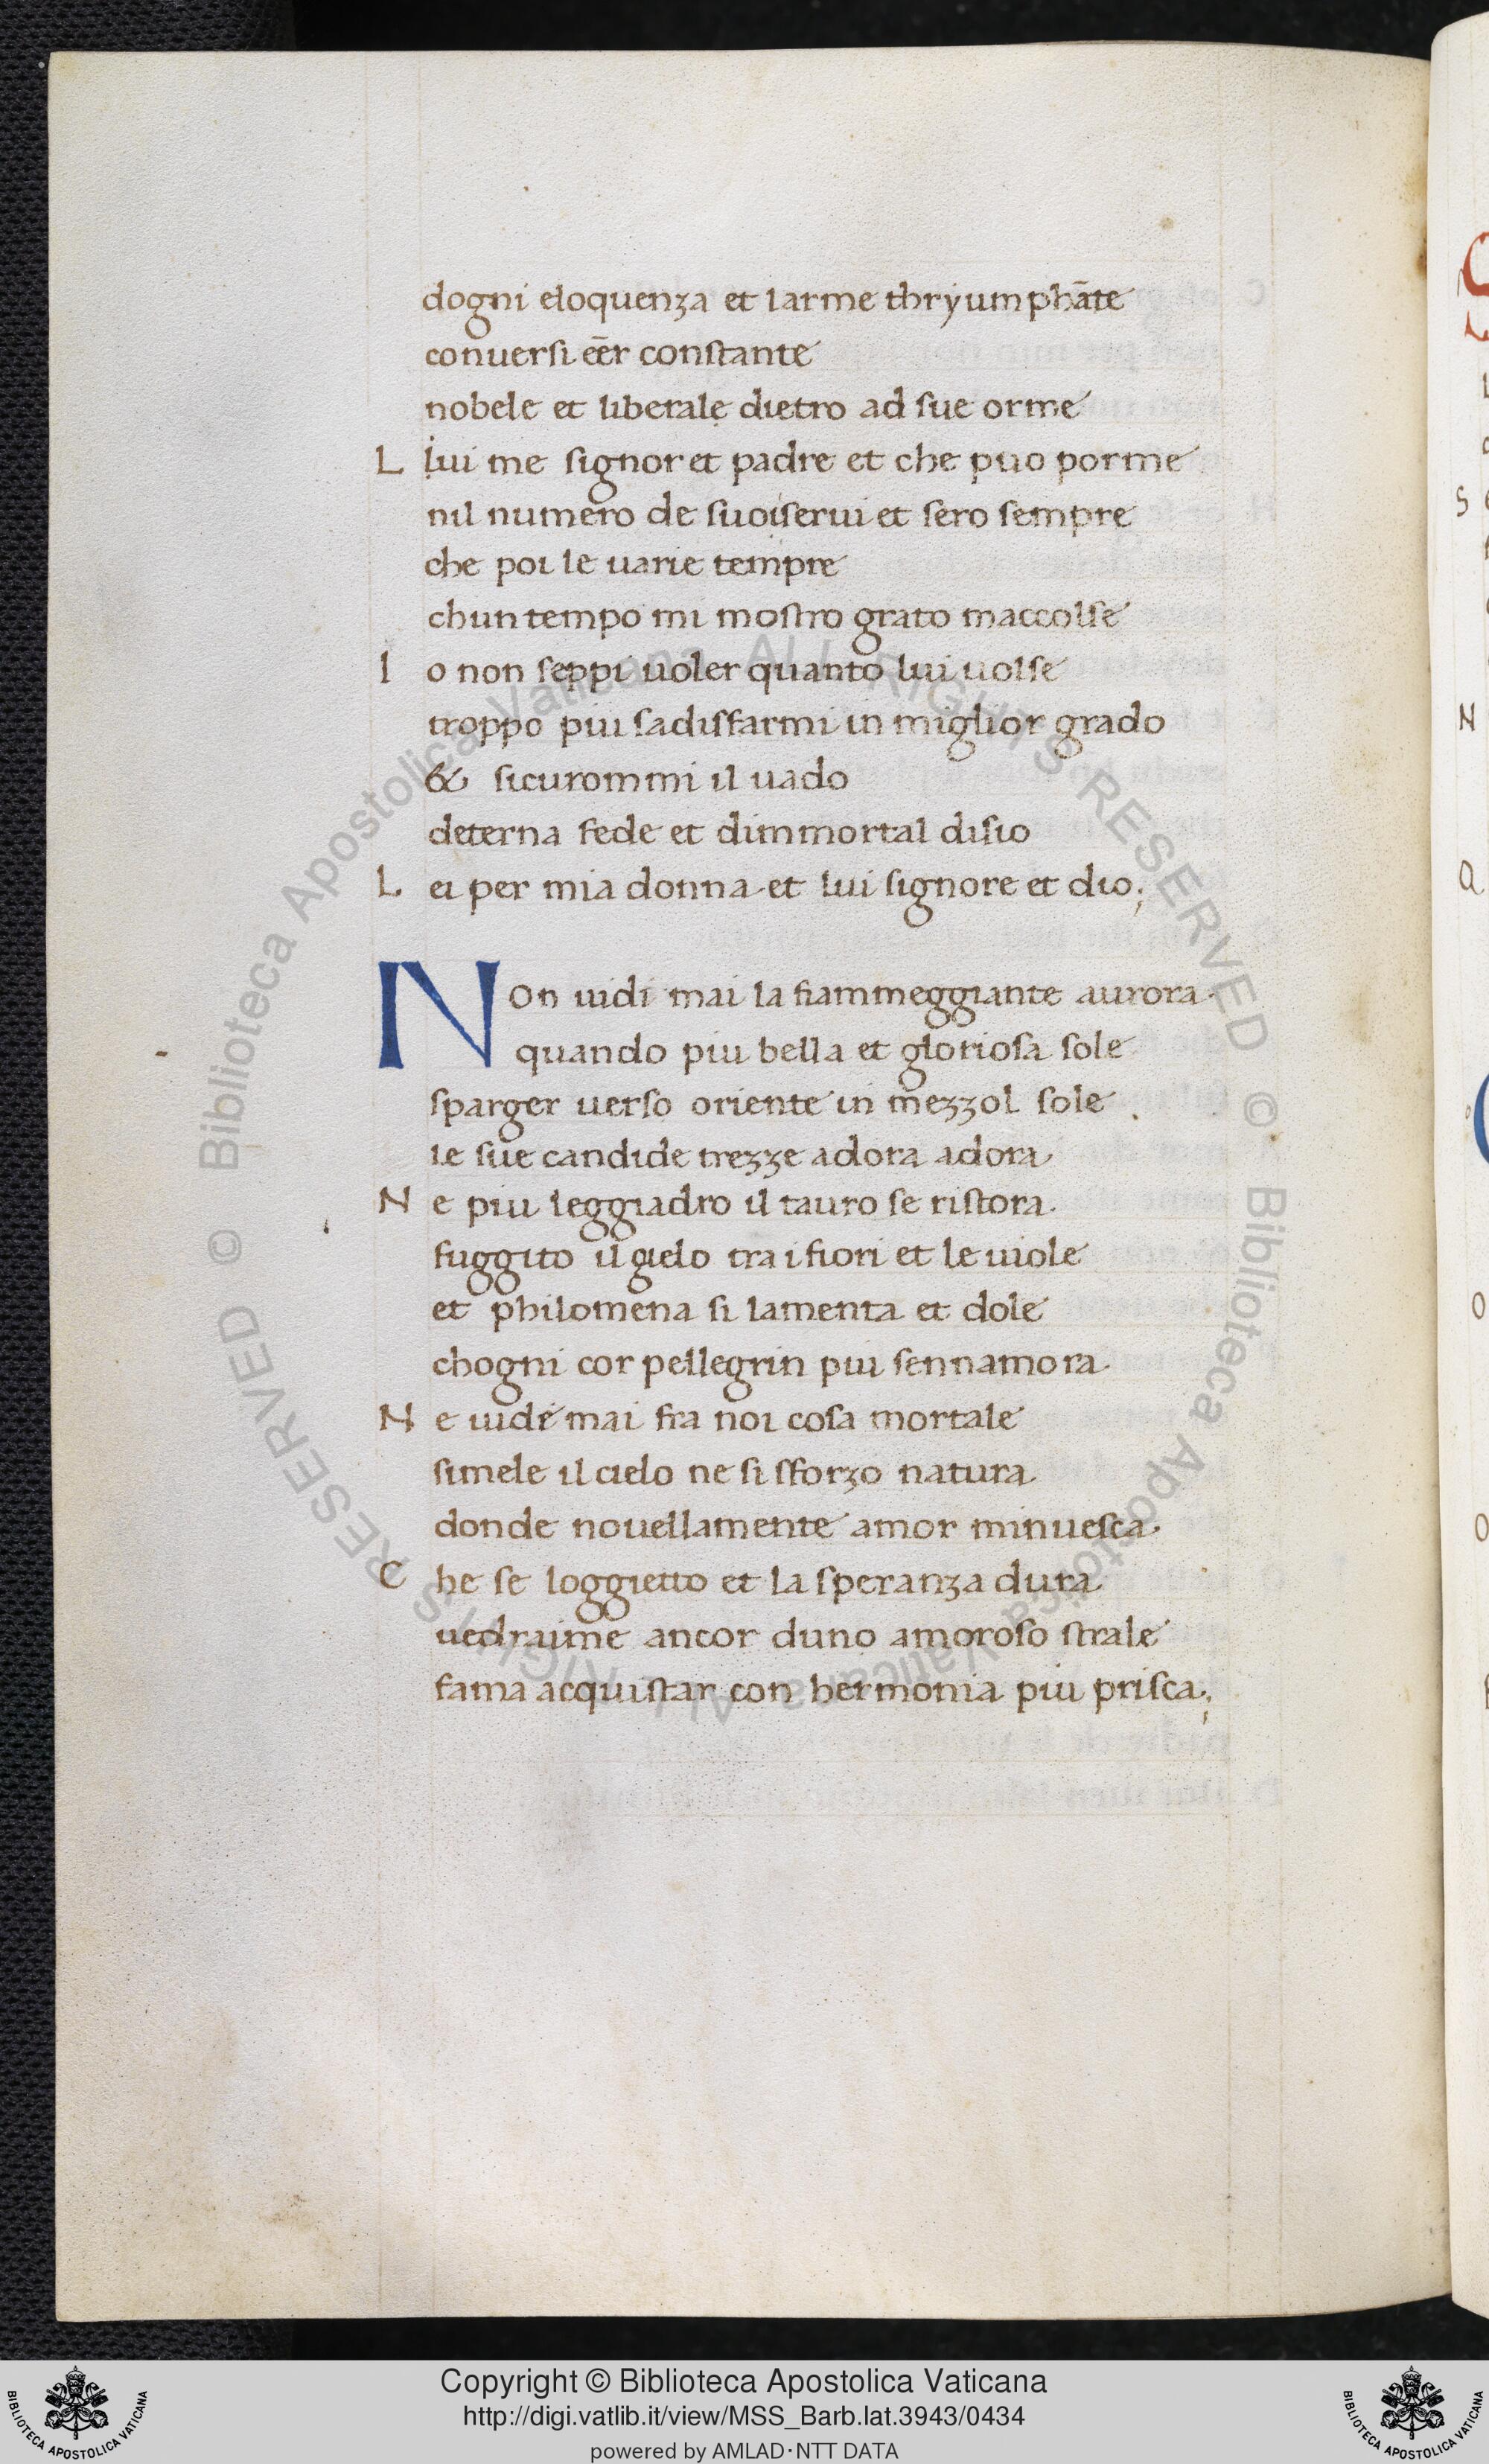 dogni eloquenza et larme thryumphāte
conuersi eēr constante
nobele et liberale dietro ad sue orme
L lui me signor et padre et che puo porme
nil numero de suoi serui et sero sempre
che poi le uarie tempre
chun tempo mi mostro grato maccolse
I o non seppi uoler quanto lui uolse
troppo piu sadisfarmi in miglior grado
& sicurommi il uado
deterna fede et dimmortal disio
L ei per mia donna et lui signore et dio;
NOn uidi mai la fiammeggiante aurora
quando piu bella et gloriosa sole
sparger uerso oriente in mezzol sole
le sue candide trezze adora adora
N e piu leggiadro il tauro se ristora
fuggito il gielo tra i fiori et le uiole
et philomena si lamenta et dole
chogni cor pellegrin piu sennamora
N e uide mai fra noi cosa mortale
simele il cielo ne si sforzo natura
donde nouellamente amor minuesca
C he se loggietto et la speranza dura
uedraime ancor duno amoroso strale
fama acquistar con hermonia piu prisca;
S
N
Q
O
O
© Biblioteca Apostolica Vaticana ALL RIGHTS RESERVED © Biblioteca Apostolica Vaticana ALL RIGHTS RESERVED
Copyright © Biblioteca Apostolica Vaticana
http://digi.vatlib.it/view/MSS_Barb.lat.3943/0434
powered by AMLAD·NTT DATA
BIBLIOTECA APOSTOLICA VATICANA
BIBLIOTECA APOSTOLICA VATICANA